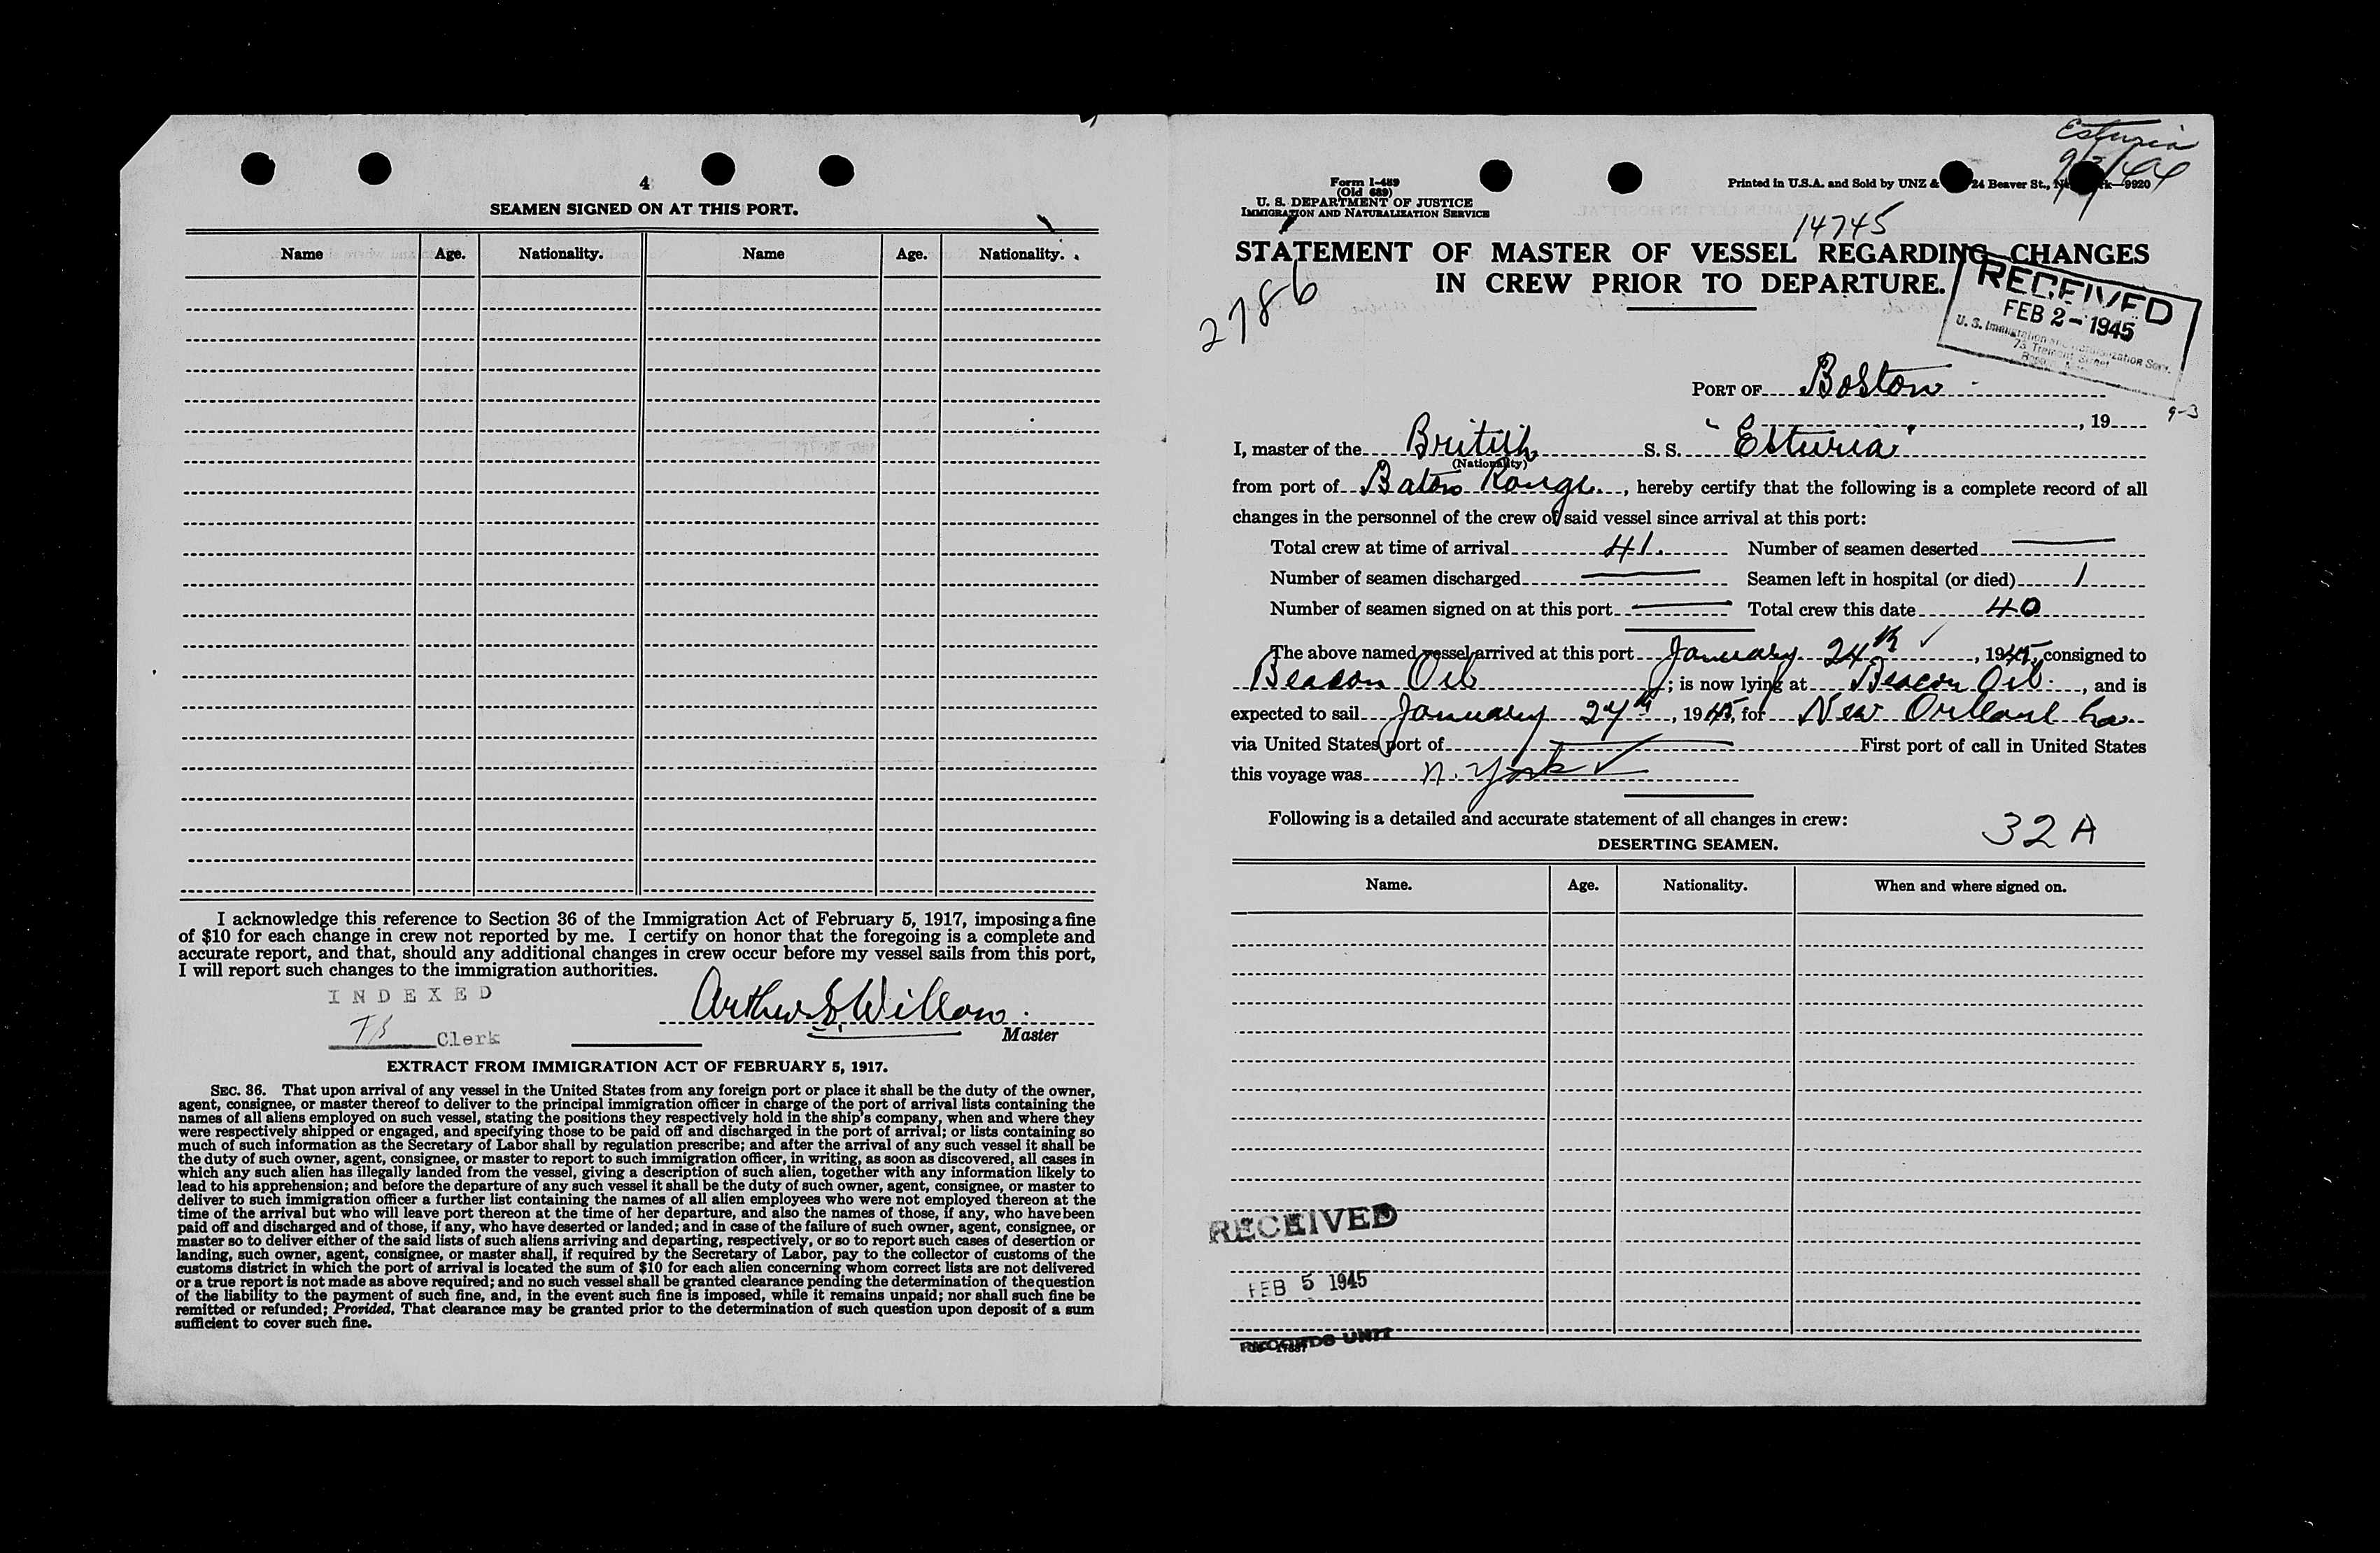 4
SEAMEN SIGNED ON AT THIS PORT.
Name Age. Nationality. Name Age. Nationality.
I acknowledge this reference to Section 36 of the Immigration Act of February 5, 1917, imposing a fine
of $10 for each change in crew not reported by me. I certify on honor that the foregoing is a complete and
accurate report, and that, should any additional changes in crew occur before my vessel sails from this port,
I will report such changes to the immigration authorities.
INDEXED
Clerk
Arthur
Master
EXTRACT FROM IMMIGRATION ACT OF FEBRUARY 5, 1917.
SEC. 36. That upon arrival of any vessel in the United States from any foreign port or place it shall be the duty of the owner,
agent, consignee, or master thereof to deliver to the principal immigration officer in charge of the port of arrival lists containing the
names of all aliens employed on such vessel, stating the positions they respectively hold in the ship's company, when and where they
were respectively shipped or engaged, and specifying those to be paid off and discharged in the port of arrival; or lists containing so
much of such information as the Secretary of Labor shall by regulation prescribe; and after the arrival of any such vessel it shall be
the duty of such owner, agent, consignee, or master to report to such immigration officer, in writing, as soon as discovered, all cases in
which any such alien has illegally landed from the vessel, giving a description of such alien, together with any information likely to
lead to his apprehension; and before the departure of any such vessel it shall be the duty of such owner, agent, consignee, or master to
deliver to such immigration officer a further list containing the names of all alien employees who were not employed thereon at the
time of the arrival but who will leave port thereon at the time of her departure, and also the names of those, if any, who have been
paid off and discharged and of those, if any, who have deserted or landed; and in case of the failure of such owner, agent, consignee, or
master so to deliver either of the said lists of such aliens arriving and departing, respectively, or so to report such cases of desertion or
landing, such owner, agent, consignee, or master shall, if required by the Secretary of Labor, pay to the collector of customs of the
customs district in which the port of arrival is located the sum of $10 for each alien concerning whom correct lists are not delivered
or a true report is not made as above required; and no such vessel shall be granted clearance pending the determination of the question
of the liability to the payment of such fine, and, in the event such fine is imposed, while it remains unpaid; nor shall such fine be
remitted or refunded; Provided, That clearance may be granted prior to the determination of such question upon deposit of a sum
sufficient to cover such fine.
Esturia
Form I-489
(Old 689)
U. S. DEPARTMENT OF JUSTICE
IMMIGRATION AND NATURALIZATION SERVICE
Printed in U.S.A. and Sold by UNZ & 24 Beaver St., 9920
14745
STATEMENT OF MASTER OF VESSEL REGARDING CHANGES
IN CREW PRIOR TO DEPARTURE.
2786
RECEIVED
FEB 2 - 1945
U. S. Immigration and Naturalization Serv.
73 Tremont Street
PORT OF Boston
9-3
, 19
I, master of the British S. S. "Esturia"
(Nationality)
from port of Baton Rouge, hereby certify that the following is a complete record of all
changes in the personnel of the crew of said vessel since arrival at this port:
Total crew at time of arrival 41. Number of seamen deserted —
Number of seamen discharged — Seamen left in hospital (or died) 1
Number of seamen signed on at this port — Total crew this date 40
The above named vessel arrived at this port January 24th ✓, 1945, consigned to
Beacon Oil; is now lying at Beacon Oil, and is
expected to sail January 27th, 1945, for New Orleans La.
via United States port of — First port of call in United States
this voyage was N. York ✓
Following is a detailed and accurate statement of all changes in crew:
32 A
DESERTING SEAMEN.
Name. Age. Nationality. When and where signed on.
RECEIVED
FEB 5 1945
RECORDS UNIT